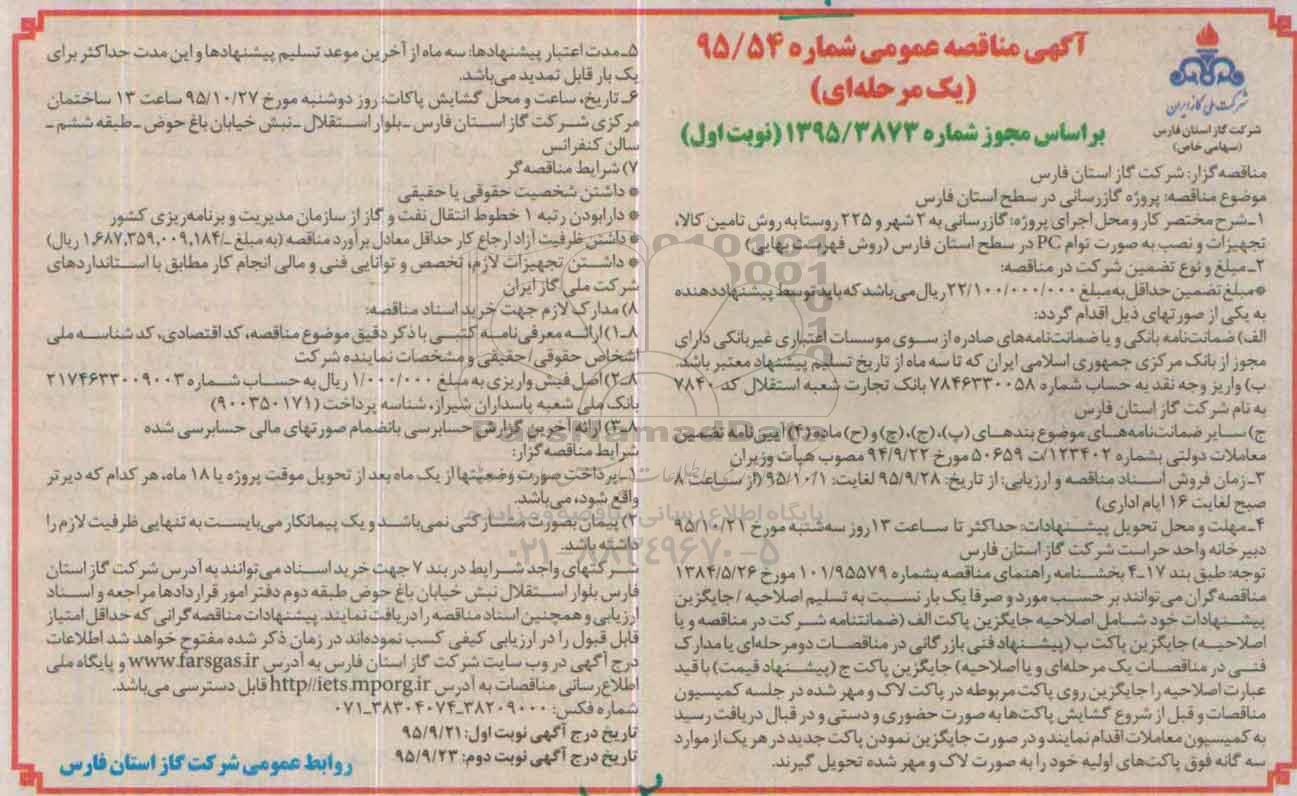 آگهی مناقصه عمومی شماره ۹۵/۵۴
(یک مرحله‌ای)
براساس مجوز شماره ۱۳۹۵/۳۸۷۳ (نوبت اول)
شرکت ملی گاز ایران
شرکت گاز استان فارس
(سهامی خاص)
مناقصه‌گزار: شرکت گاز استان فارس
موضوع مناقصه: پروژه گازرسانی در سطح استان فارس
۱ـ شرح مختصر کار و محل اجرای پروژه: گازرسانی به ۲ شهر و ۲۲۵ روستا به روش تامین کالا،
تجهیزات و نصب به صورت توام PC در سطح استان فارس (روش فهرست بهایی)
۲ـ مبلغ و نوع تضمین شرکت در مناقصه:
* مبلغ تضمین حداقل به مبلغ ۲۲/۱۰۰/۰۰۰/۰۰۰ ریال می‌باشد که باید توسط پیشنهاددهنده
به یکی از صورتهای ذیل اقدام گردد:
الف) ضمانت‌نامه بانکی و یا ضمانت‌نامه‌های صادره از سوی موسسات اعتباری غیربانکی دارای
مجوز از بانک مرکزی جمهوری اسلامی ایران که تا سه ماه از تاریخ تسلیم پیشنهاد معتبر باشد.
ب) واریز وجه نقد به حساب شماره ۷۸۴۶۳۳۰۰۵۸ بانک تجارت شعبه استقلال کد ۷۸۴۰
به نام شرکت گاز استان فارس
ج) سایر ضمانت‌نامه‌های موضوع بندهای (پ)، (ج)، (چ) و (ح) ماده (۴) آیین‌نامه تضمین
معاملات دولتی بشماره ۱۲۳۴۰۲/ت ۵۰۶۵۹ مورخ ۹۴/۹/۲۲ مصوب هیأت وزیران
۳ـ زمان فروش اسناد مناقصه و ارزیابی: از تاریخ: ۹۵/۹/۲۸ لغایت: ۹۵/۱۰/۱ (از ساعت ۸
صبح لغایت ۱۶ ایام اداری)
۴ـ مهلت و محل تحویل پیشنهادات: حداکثر تا ساعت ۱۳ روز سه‌شنبه مورخ ۹۵/۱۰/۲۱
دبیرخانه واحد حراست شرکت گاز استان فارس
توجه: طبق بند ۱۷ـ۴ بخشنامه راهنمای مناقصه بشماره ۱۰۱/۹۵۵۷۹ مورخ ۱۳۸۴/۵/۲۶
مناقصه‌گران می‌توانند بر حسب مورد و صرفا یک بار نسبت به تسلیم اصلاحیه / جایگزین
پیشنهادات خود شامل اصلاحیه جایگزین پاکت الف (ضمانتنامه شرکت در مناقصه و یا
اصلاحیه) جایگزین پاکت ب (پیشنهاد فنی بازرگانی در مناقصات دومرحله‌ای یا مدارک
فنی در مناقصات یک مرحله‌ای و یا اصلاحیه) جایگزین پاکت ج (پیشنهاد قیمت) با قید
عبارت اصلاحیه را جایگزین روی پاکت مربوطه در پاکت لاک و مهر شده در جلسه کمیسیون
مناقصات و قبل از شروع گشایش پاکت‌ها به صورت حضوری و دستی و در قبال دریافت رسید
به کمیسیون معاملات اقدام نمایند و در صورت جایگزین نمودن پاکت جدید در هر یک از موارد
سه گانه فوق پاکت‌های اولیه خود را به صورت لاک و مهر شده تحویل گیرند.
۵ـ مدت اعتبار پیشنهادها: سه ماه از آخرین موعد تسلیم پیشنهادها و این مدت حداکثر برای
یک بار قابل تمدید می‌باشد.
۶ـ تاریخ، ساعت و محل گشایش پاکات: روز دوشنبه مورخ ۹۵/۱۰/۲۷ ساعت ۱۳ ساختمان
مرکزی شرکت گاز استان فارس ـ بلوار استقلال ـ نبش خیابان باغ حوض ـ طبقه ششم ـ
سالن کنفرانس
۷) شرایط مناقصه‌گر
* داشتن شخصیت حقوقی یا حقیقی
* دارا بودن رتبه ۱ خطوط انتقال نفت و گاز از سازمان مدیریت و برنامه‌ریزی کشور
* داشتن ظرفیت آزاد ارجاع کار حداقل معادل برآورد مناقصه (به مبلغ ـ/۱,۶۸۷,۳۵۹,۰۰۹,۱۸۴ ریال)
* داشتن تجهیزات لازم، تخصص و توانایی فنی و مالی انجام کار مطابق با استانداردهای
شرکت ملی گاز ایران
۸) مدارک لازم جهت خرید اسناد مناقصه:
۸ـ۱) ارائه معرفی‌نامه کتبی با ذکر دقیق موضوع مناقصه، کد اقتصادی، کد شناسه ملی
اشخاص حقوقی/حقیقی و مشخصات نماینده شرکت
۸ـ۲) اصل فیش واریزی به مبلغ ۱/۰۰۰/۰۰۰ ریال به حساب شماره ۲۱۷۴۶۳۳۰۰۹۰۰۳
بانک ملی شعبه پاسداران شیراز، شناسه پرداخت (۹۰۰۳۵۰۱۷۱)
۸ـ۳) ارائه آخرین گزارش حسابرسی بانضمام صورتهای مالی حسابرسی شده
شرایط مناقصه‌گزار:
۱ـ پرداخت صورت وضعیتها از یک ماه بعد از تحویل موقت پروژه یا ۱۸ ماه، هر کدام که دیرتر
واقع شود، می‌باشد.
۲) پیمان بصورت مشارکتی نمی‌باشد و یک پیمانکار می‌بایست به تنهایی ظرفیت لازم را
داشته باشد.
شرکتهای واجد شرایط در بند ۷ جهت خرید اسناد می‌توانند به آدرس شرکت گاز استان
فارس بلوار استقلال نبش خیابان باغ حوض طبقه دوم دفتر امور قراردادها مراجعه و اسناد
ارزیابی و همچنین اسناد مناقصه را دریافت نمایند. پیشنهادات مناقصه‌گرانی که حداقل امتیاز
قابل قبول را در ارزیابی کیفی کسب نموده‌اند در زمان ذکر شده مفتوح خواهد شد اطلاعات
درج آگهی در وب سایت شرکت گاز استان فارس به آدرس www.farsgas.ir و پایگاه ملی
اطلاع‌رسانی مناقصات به آدرس http//iets.mporg.ir قابل دسترسی می‌باشد.
شماره فکس: ۳۸۲۰۹۰۰۰ـ۳۸۳۰۴۰۷۴ـ۰۷۱
تاریخ درج آگهی نوبت اول: ۹۵/۹/۲۱
تاریخ درج آگهی نوبت دوم: ۹۵/۹/۲۳
روابط عمومی شرکت گاز استان فارس
ParsNamadData
پایگاه اطلاع رسانی مناقصه و مزایده
۰۲۱-۸۸۳۴۹۶۷۰-۵